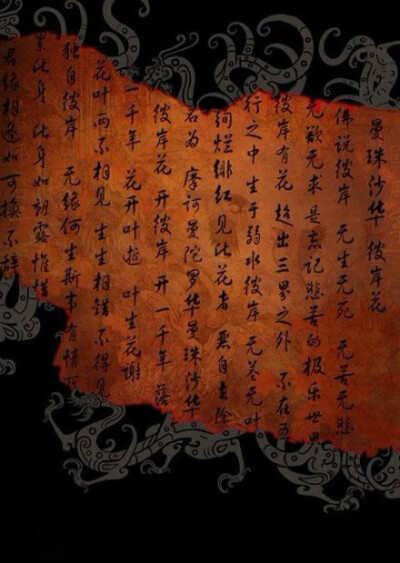 曼珠沙华 彼岸花
佛说彼岸 无生无死 无苦无悲
无欲无求 是忘记悲苦的极乐世界
彼岸有花 超出三界之外 不在五
行之中 生于弱水彼岸 无茎无叶
绚烂绯红 见此花者 恶自去除
名为 摩诃曼陀罗华曼珠沙华
彼岸花 开彼岸 开一千年 落
一千年 花开叶 叶生花谢
花叶两不相见 生生相错 不得见
独自彼岸 无缘何生斯 有情
累此身 此身如朝露惟惜
君缘相逢如可换 不辞